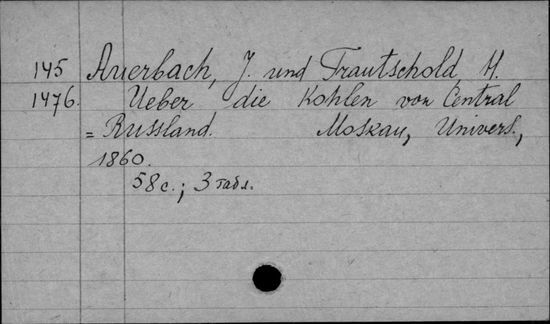 145 Auerbach, J. und Trautschold, H.
1476. Ueber die Kohlen von Central
= Russland. Moskau, Univers.,
1860.
58 с.; 3 табл.